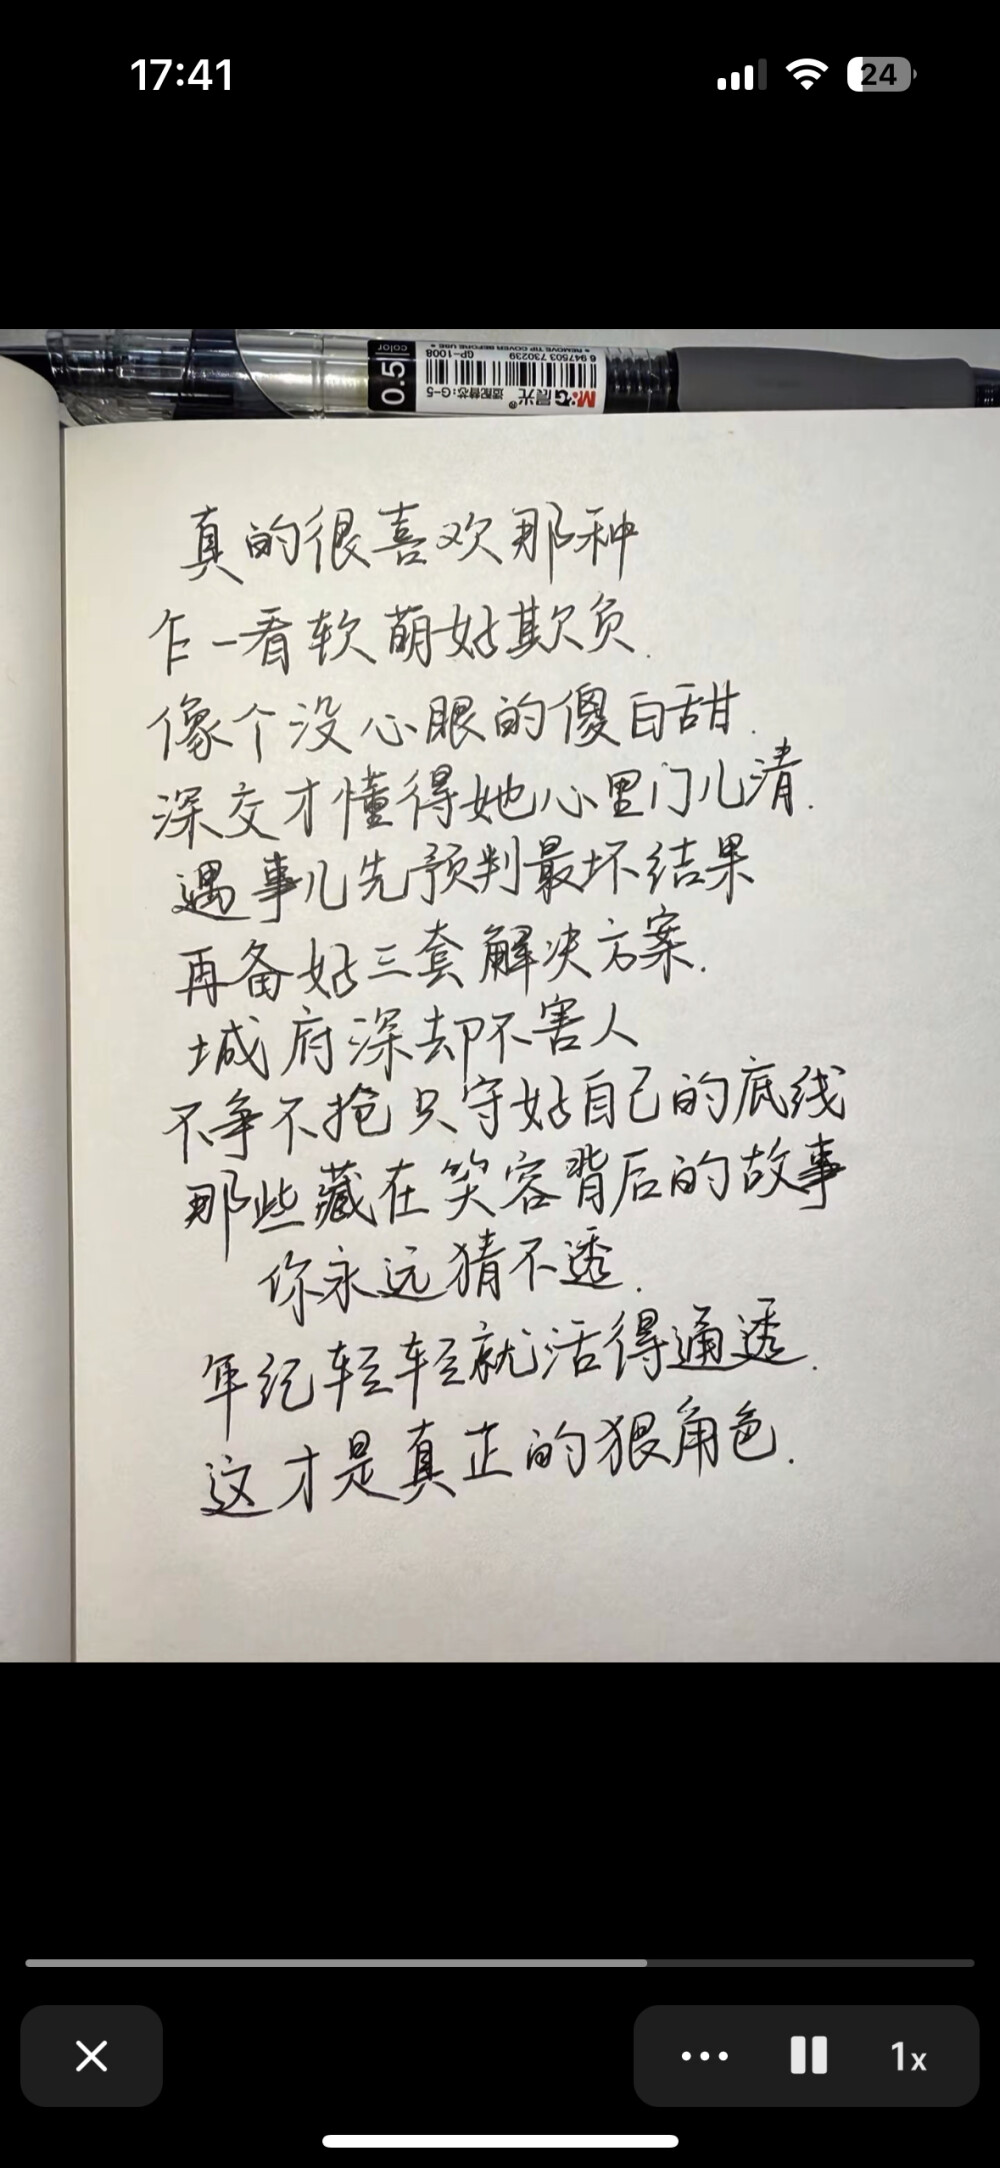 17:41
24
6 947503 730239
● REMOVE TIP COVER BEFORE USE ●
GP-1008
color
0.5
M&G晨光®
适配替芯:G-5
真的很喜欢那种
乍一看软萌好欺负.
像个没心眼的傻白甜.
深交才懂得她心里门儿清.
遇事儿先预判最坏结果
再备好三套解决方案.
城府深却不害人
不争不抢只守好自己的底线
那些藏在笑容背后的故事
你永远猜不透.
年纪轻轻就活得通透.
这才是真正的狠角色.
1x